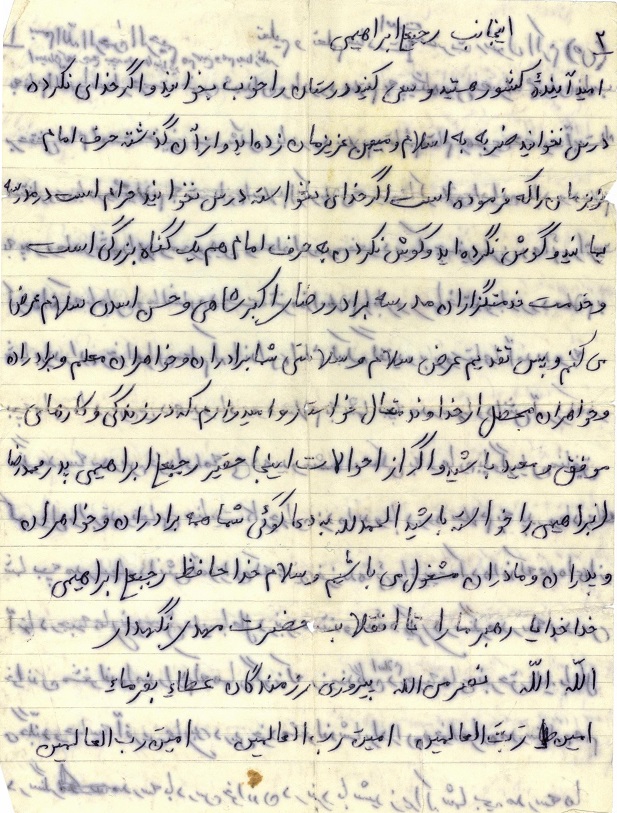 ۲
اینجانب رجبعلی ابراهیمی
امید آیندۀ کشور هستید و سعی کنید درستان را خوب بخوانید و اگر خدای نکرده
درس نخوانید ضربه به اسلام و میهن عزیزمان زده اید و از آن گذشته حرف امام
عزیزمان را که فرموده است اگر خدای نخواسته درس نخوانید حرام است در مدرسه
بمانید و گوش نکرده اید و گوش نکردن به حرف امام هم یک گناه بزرگی است
و خدمت خدمتگزاران مدرسه برادر رضای اکبرشاهی و حسن اسدی سلام عرض
می کنم و پس تقدیم عرض سلام و سلامتی شما برادران و خواهران معلم و برادران
و خواهران محصل از خداوند متعال خواستار و امیدوارم که در زندگی و کارهای
موفق و مؤید باشید و اگر از احوالات اینجا حقیر رجبعلی ابراهیمی پدر محمدرضا
ابراهیمی را خواسته باشید الحمدلله به دعاگوئی شما همه برادران و خواهران
و پدران و مادران مشغول می باشیم و سلام خداحافظ رجبعلی ابراهیمی
خدا خدایا رهبر ما را تا انقلاب حضرت مهدی نگهدار
اللّه اللّه نصر من الله پیروزی رزمندگان عطاء بفرماء
امین رب العالمین امین رب العالمین امین رب العالمین